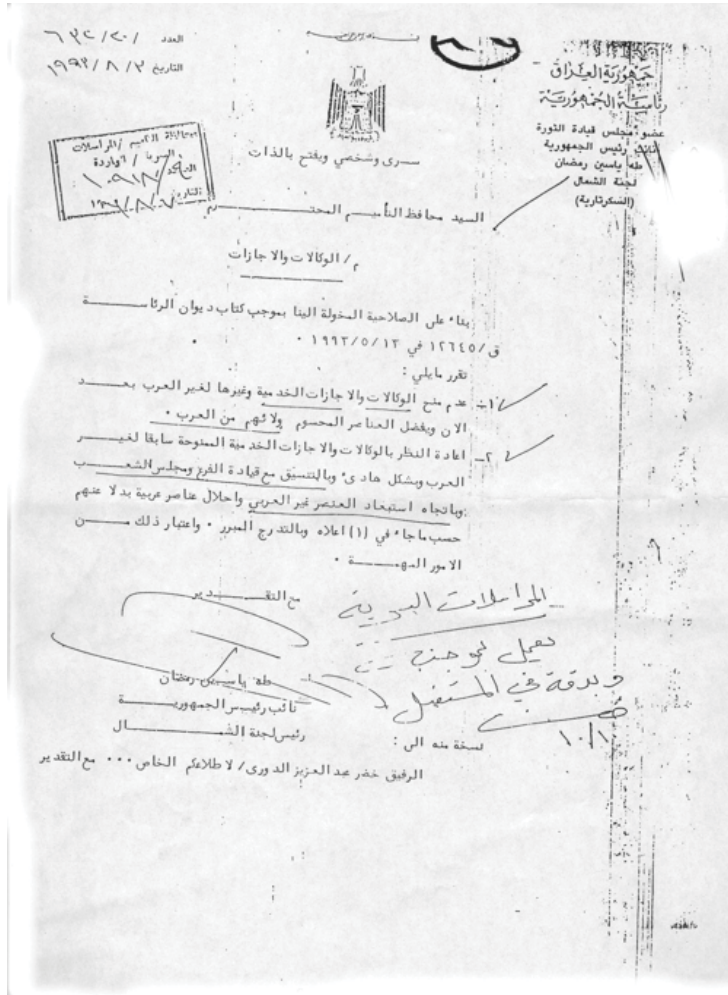 جمهورية العراق
رئاسة الجمهورية
عضو مجلس قيادة الثورة
نائب رئيس الجمهورية
طه ياسين رمضان
لجنة الشمال
(السكرتارية)
العدد / ٢٠ / ٦٣٢
التاريخ ٢ / ٨ / ١٩٩٣
سرى وشخصي ويفتح بالذات
محافظة التأميم / المراسلات
السرية / الواردة
العدد ١٠٩١٨
التاريخ
السيد محافظ التأميم المحترم
م / الوكالات والاجازات
بناء على الصلاحية المخولة الينا بموجب كتاب ديوان الرئاسة
ق / ١٢٦٤٥ في ١٣ / ٥ / ١٩٩٣ ٠
تقرر مايلي :
١- عدم منح الوكالات والاجازات الخدمية وغيرها لغير العرب بعد
الان ويفضل العناصر المحسوم ولائهم من العرب ٠
٢- اعادة النظر بالوكالات والاجازات الخدمية الممنوحة سابقا لغير
العرب وبشكل هادىء وبالتنسيق مع قيادة الفرع ومجلس الشعب
وباتجاه استبعاد العنصر غير العربي واحلال عناصر عربية بدلا عنهم
حسب ماجاء في (١) اعلاه وبالتدرج المبرر ٠ واعتبار ذلك من
الامور المهمة ٠
مع التقدير
المراسلات السرية
يعمل بموجبه
وبدقة في المستقبل
١٠/٨
طه ياسين رمضان
نائب رئيس الجمهورية
رئيس لجنة الشمال
نسخة منه الى :
الرفيق خضر عبد العزيز الدورى / لاطلاعكم الخاص ٠٠٠ مع التقدير